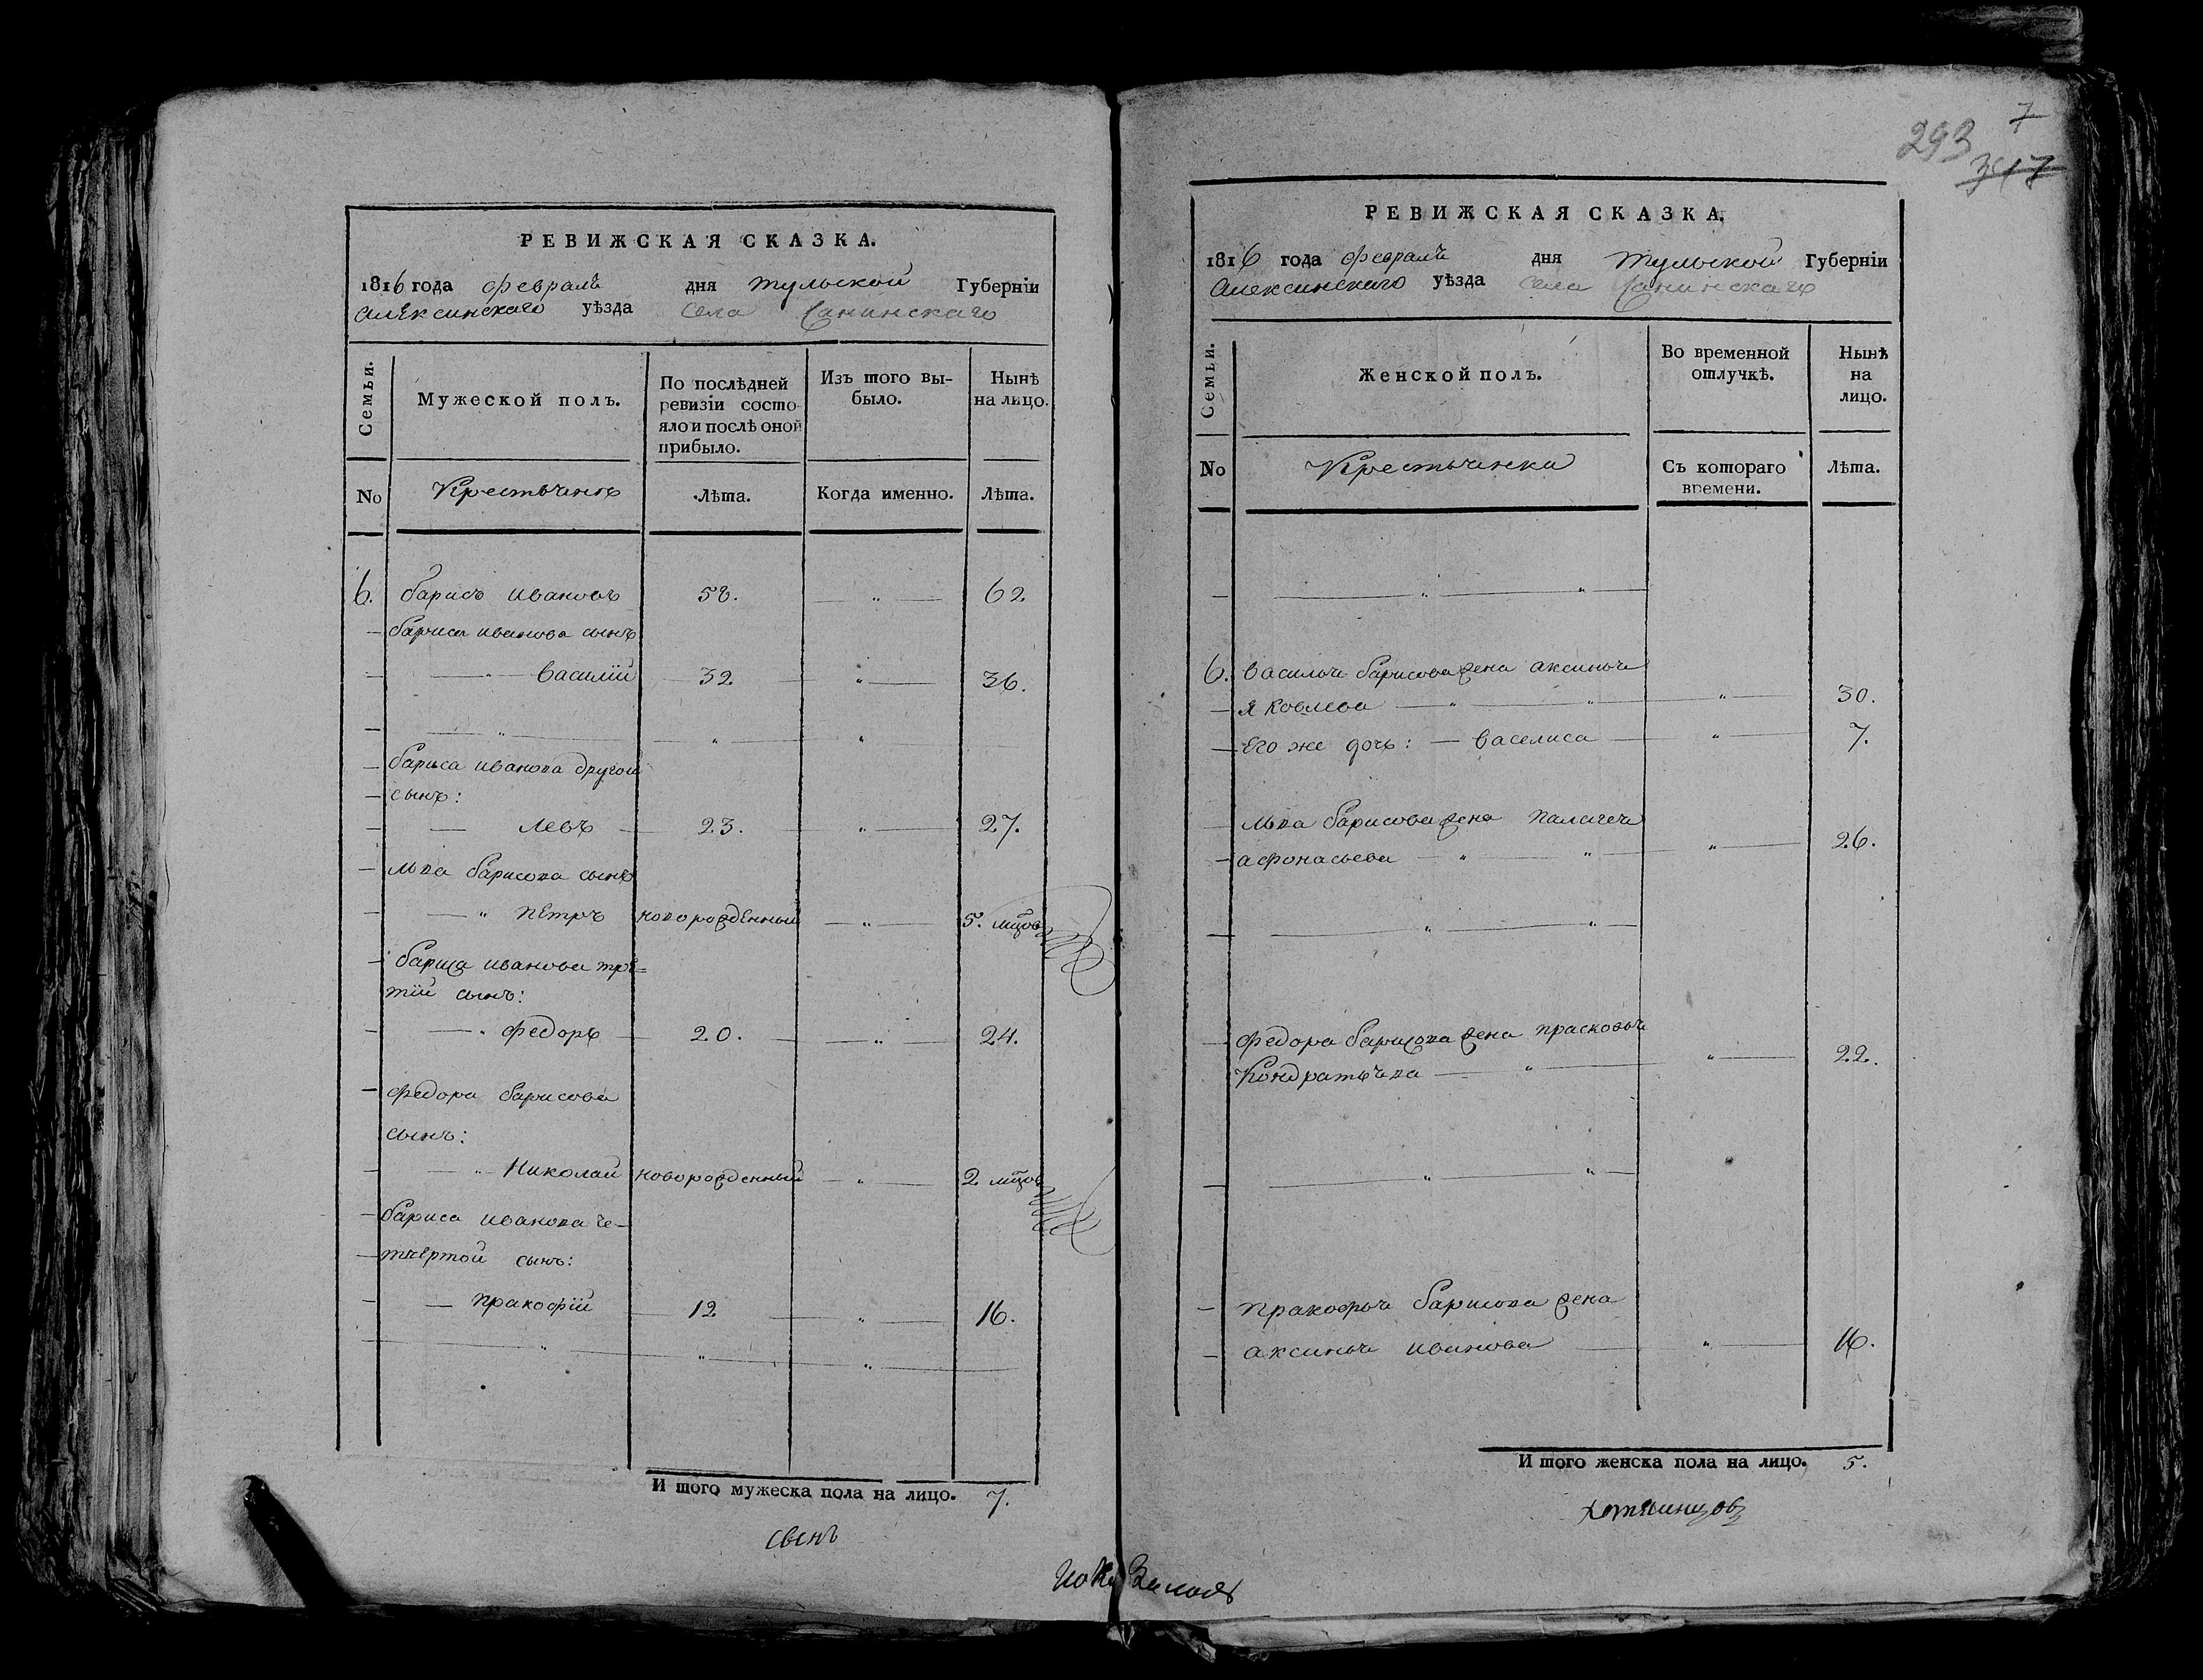 РЕВИЖСКАЯ СКАЗКА.
1816 года февраля дня Тульской Губерніи
Алексинскаго уѣзда села Санинскаго
Семьи.
Мужеской полъ.
По послѣдней ревизіи состо-
яло и послѣ оной
прибыло.
Изъ того вы-
было.
Нынѣ
на лицо.
No
Крестьяне
Лѣта.
Когда именно.
Лѣта.
6. барисъ ивановъ 58. 62
бариса иванова сынъ
василій 32 36.
бариса иванова другой
сынъ:
левъ 23. 27.
льва барисова сынъ
петръ новорожденный 5. мцов
бариса иванова тре=
тій сынъ:
федоръ 20. 24.
федора барисова
сынъ:
николай новорожденный 2 мцов
бариса иванова че-
твертой сынъ:
пракофій 12 16.
И того мужеска пола на лицо. 7.
сынъ
293 7
РЕВИЖСКАЯ СКАЗКА.
1816 года февраля дня Тульской Губерніи
Алексинскаго уѣзда села Санинскаго
Семьи.
Женской полъ.
Во временной
отлучкѣ.
Нынѣ
на
лицо.
No
Крестьянки
Съ котораго
времени.
Лѣта.
6. василья барисова жена аксинья
яковлева 30.
его же дочь: васелиса 7.
льва барисова жена палагея
афонасьева 26.
федора барисова жена прасковья
Кондратьева 22.
пракофья барисова жена
аксинья иванова 16.
И того женска пола на лицо. 5.